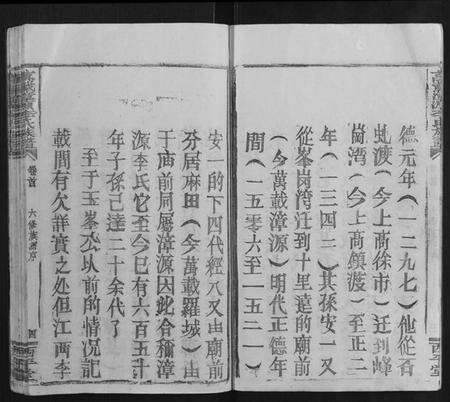 德元年（一二九七）他從杏
虬渡（今上高徐市）迁到峰
崗湾（今上高鎮渡）至正二
年（一三四二）其孫安一又
從峯崗湾迁到十里遠的廟前
（今萬載漳源）明代正德年
間（一五零六至一五二一）
安一的下四代經八又由廟前
分居麻田（今萬載羅城）由
于庙前同屬漳源因此合稱漳
源李氏它至今已有六百五十
年子孫已達二十余代了
至于玉峯公以前的情况記
載間有欠詳實之处但江西李
卷首
六修族谱序
四
西平堂